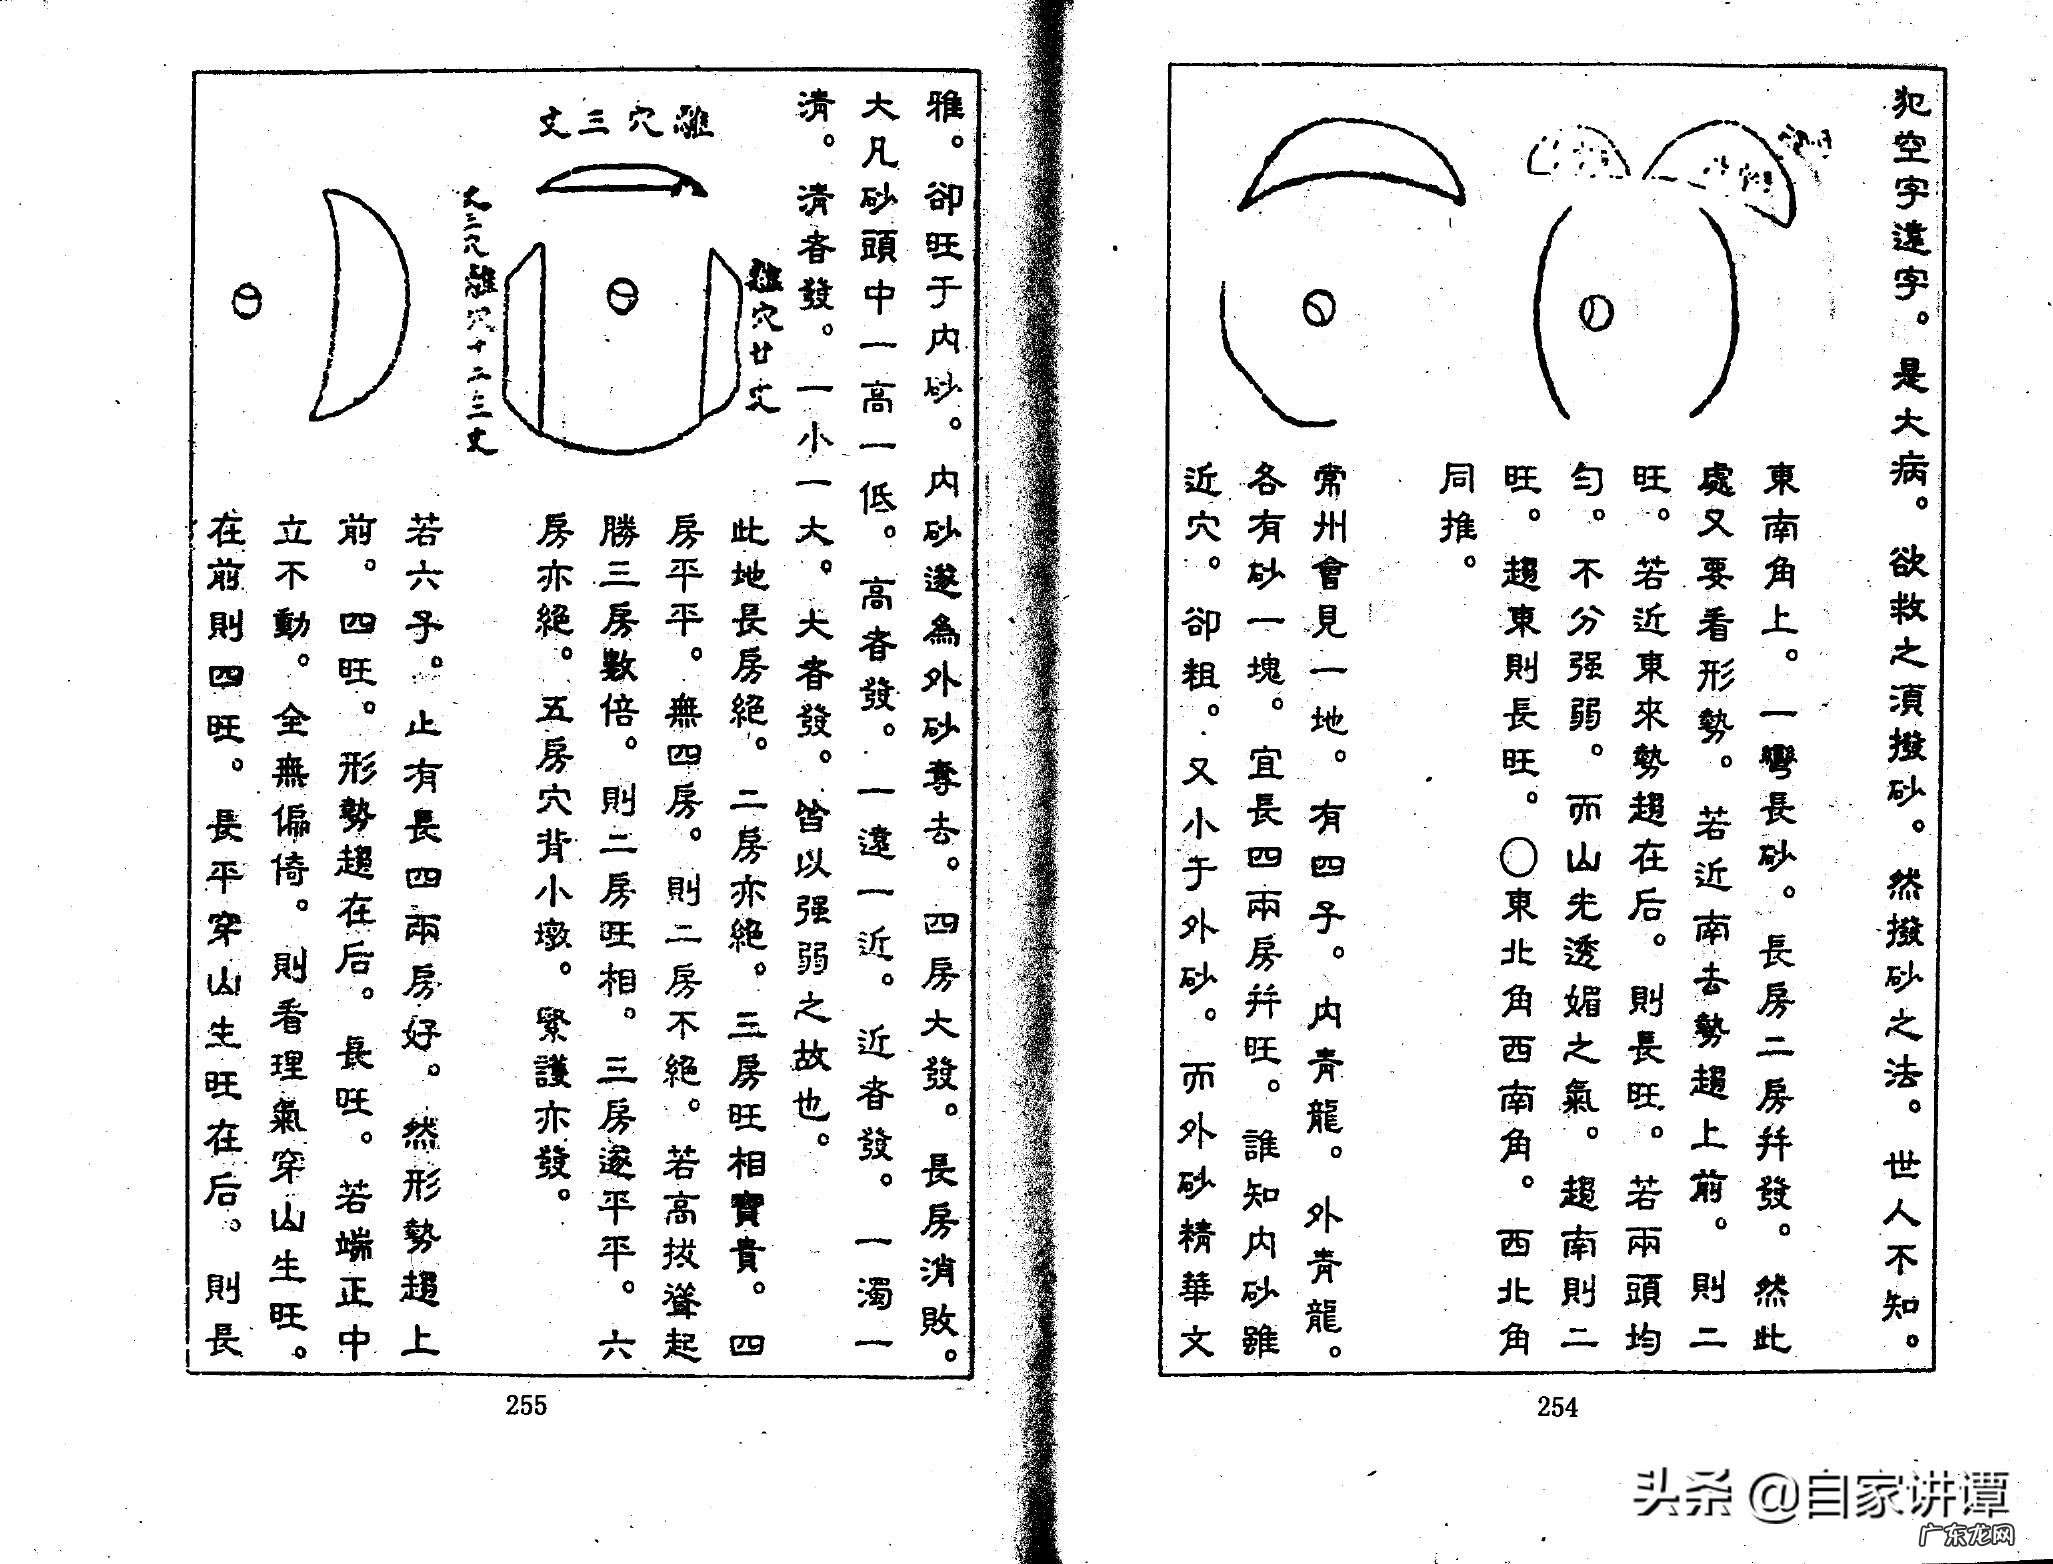 犯空字遠字。是大病。欲救之湏撥砂。然撥砂之法。世人不知。
東南角上。一彎長砂。長房二房幷發。然此
處又要看形勢。若近南去勢趨上前。則二
旺。若近東來勢趨在后。則長旺。若兩頭均
匀。不分强弱。而山先透媚之氣。趨南則二
旺。趨東則長旺。〇東北角西南角。西北角
同推。
常州會見一地。有四子。内青龍。外青龍。
各有砂一塊。宜長四兩房幷旺。誰知内砂雖
近穴。卻粗。又小于外砂。而外砂精華文
254
雅。卻旺于内砂。内砂遂為外砂奪去。四房大發。長房消敗。
大凡砂頭中一高一低。高者發。一遠一近。近者發。一濁一
清。清者發。一小一大。大者發。皆以强弱之故也。
離穴三丈
離穴廿丈
丈三穴離穴十二三丈
此地長房絕。二房亦絕。三房旺相寶貴。四
房平平。無四房。則二房不絕。若高拔聳起
勝三房數倍。則二房旺相。三房遂平平。六
房亦絕。五房穴背小墩。緊護亦發。
若六子。止有長四兩房好。然形勢趨上
前。四旺。形勢趨在后。長旺。若端正中
立不動。全無偏倚。則看理氣穿山生旺。
在前則四旺。長平穿山生旺在后。則長
255
头条 @自家讲谭
广东龙网